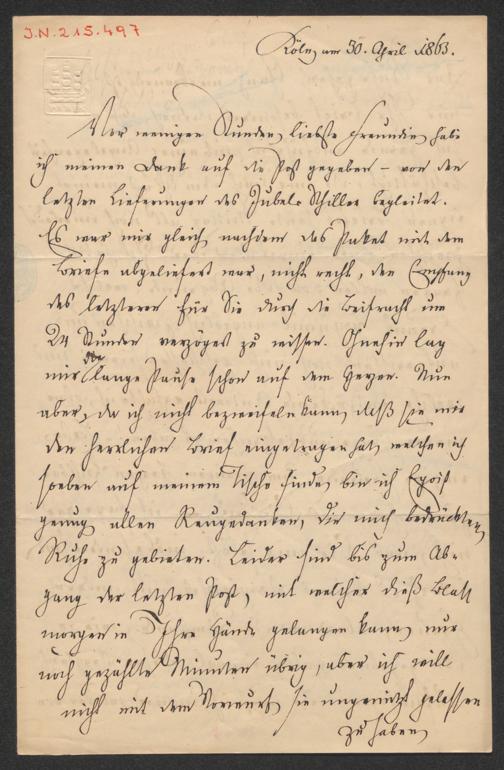 J.N. 215.497
Köln, am 30. April 1863.
Vor wenigen Stunden, liebste Freundin, habe
ich meinen Dank auf die Post gegeben – von den
letzten Lieferungen des Jubel-Schiller begleitet.
Es war mir gleich, nachdem das Paket mit dem
Briefe abgeliefert war, nicht recht, den Empfang
des letzteren für Sie durch die Beifracht um
24 Stunden verzögert zu wissen. Ohnehin lag
mir die lange Pause schon auf dem Herzen. Nun
aber, da ich nicht bezweifeln kann, daß sie mir
den herrlichen Brief eingetragen hat, welchen ich
soeben auf meinem Tische finde, bin ich Egoist
genug allen Reugedanken, die mich bedrückten,
Ruhe zu gebieten. Leider sind bis zum Ab-
gang der letzten Post, mit welcher dieß Blatt
morgen in Ihre Hände gelangen kann, nur
noch gezählte Minuten übrig, aber ich will
nicht mit dem Vorwurf, sie ungenützt gelassen
zu haben,